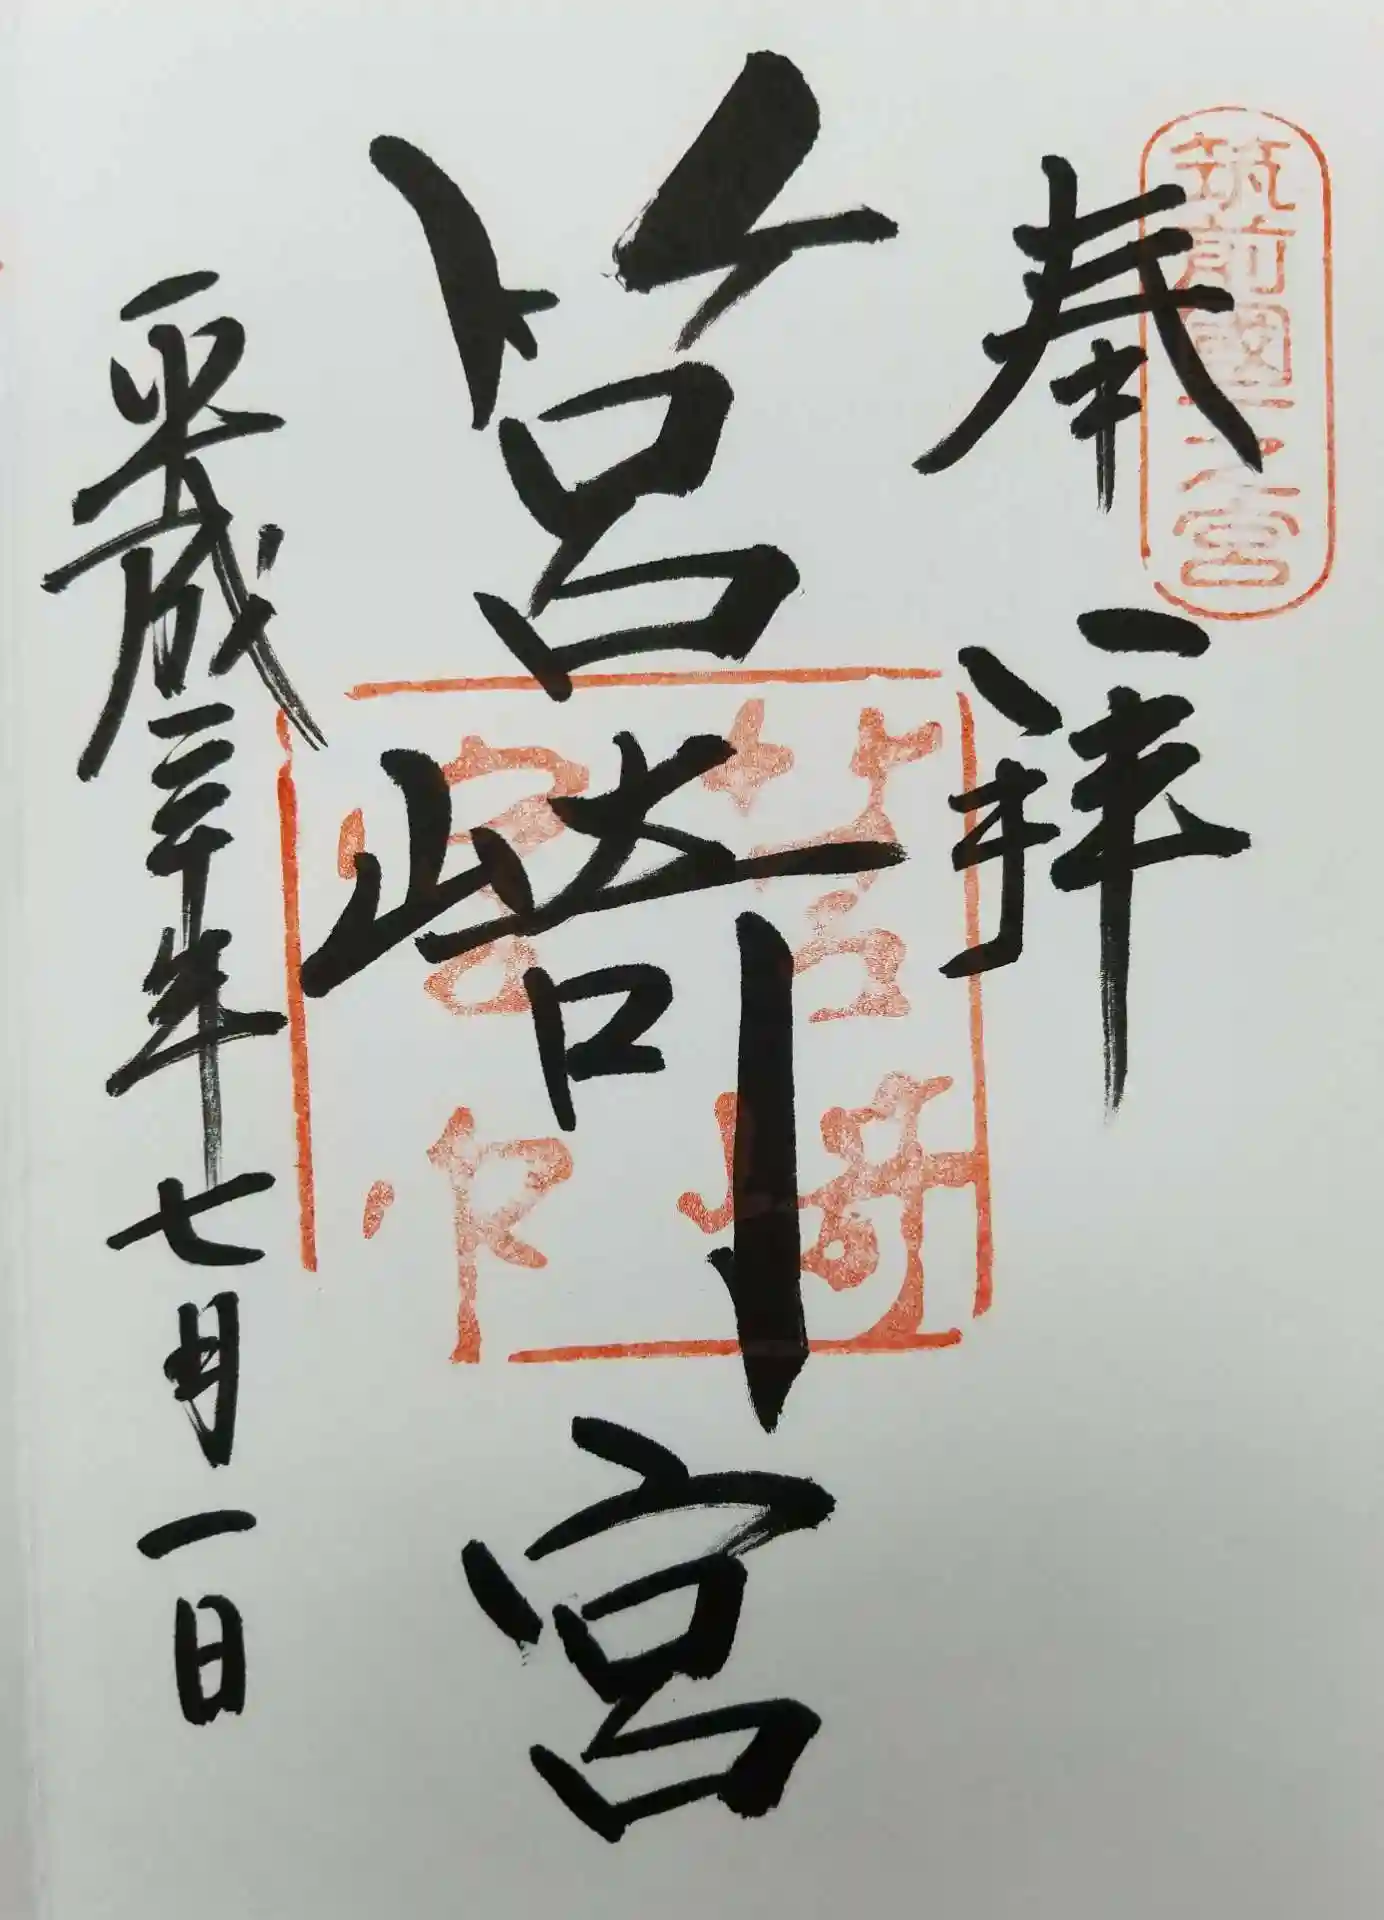 奉拝
筑前國一之宮
筥崎宮
筥崎宮印
平成三十年七月一日